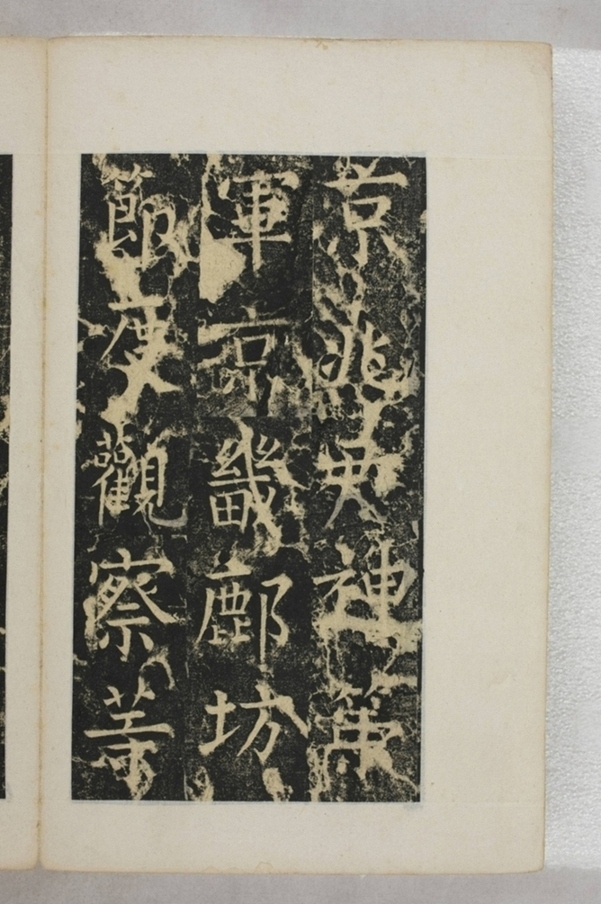 京兆尹神策
軍京畿鄜坊
節度觀察等